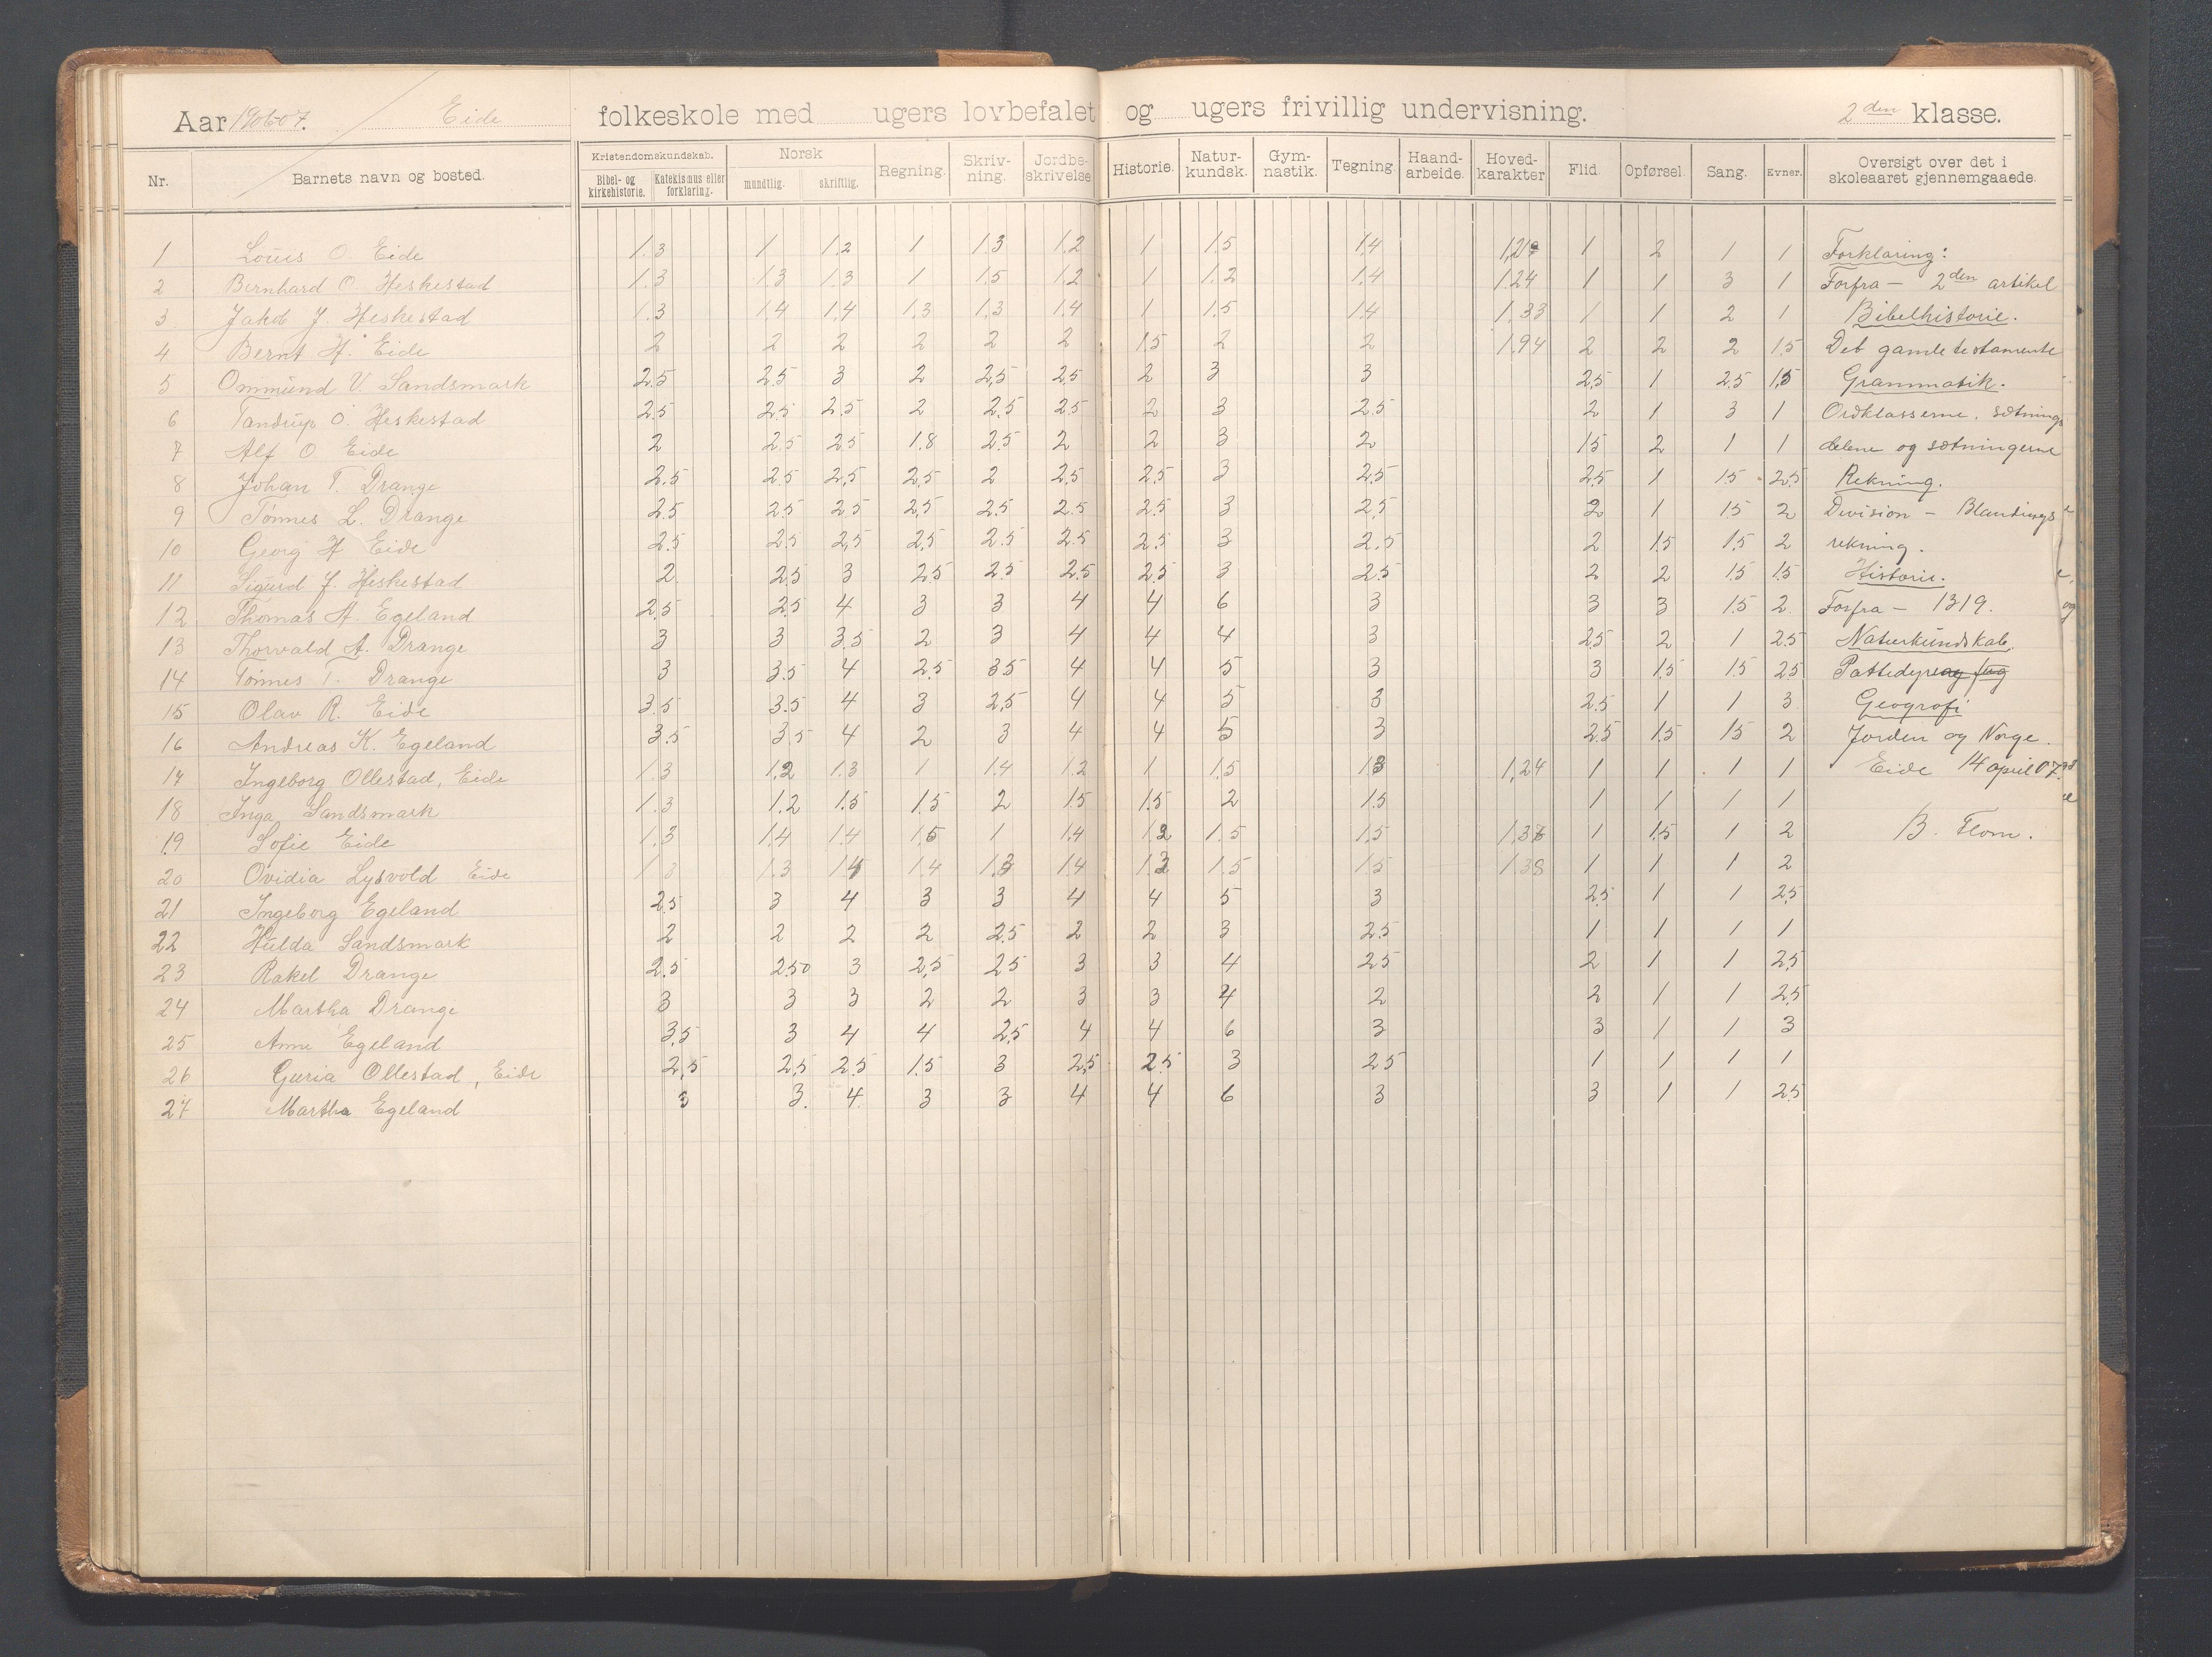 Aar 1906-07. Eide folkeskole med ugers lovbefalet og ugers frivillig undervisning. 2den klasse.
Nr. Barnets navn og bosted. Kristendomskundskab. Bibel- og kirkehistorie. Katekismus eller forklaring. Norsk mundtlig. skriftlig. Regning. Skriv-ning. Jordbe-skrivelse Historie. Natur-kundsk. Gym-nastik. Tegning Haand-arbeide. Hoved-karakter Flid. Opførsel. Sang. Evner. Oversigt over det i skoleaaret gjennemgaaede.
1 Louis O. Eide 1.3 1 1.2 1 1.3 1.2 1 1.5 1.4 1 2 1 1 Forklaring:
2 Bernhard O. Heskestad 1.3 1.3 1.3 1 1.5 1.2 1 1.2 1.4 1.24 1 1 3 1 Forfra — 2den artikel
3 Jakob J. Heskestad 1.3 1.4 1.4 1.3 1.3 1.4 1 1.5 1.4 1.33 1 1 2 1 Bibelhistorie.
4 Bernt H. Eide 2 2 2 2 2 2 1.5 2 2 1.94 2 2 2 1.5 Det gamle testamente
5 Ommund V. Sandsmark 2.5 2.5 3 2 2,5 2.5 2 3 3 2.5 1 2.5 1.5 Grammatik.
6 Tandrup O. Heskestad 2.5 2.5 2.5 2 2.5 2.5 2 3 2.5 2 1 3 1 Ordklasserne, sætnings
7 Alf O. Eide 2 2.5 2.5 1.8 2.5 2 2 3 2 1.5 2 1 1 delene og sætningerne
8 Johan T. Drange 2.5 2.5 2,5 2,5 2 2,5 2.5 3 2.5 2.5 1 1.5 2.5 Rekning.
9 Tønnes L. Drange 2.5 2.5 2.5 2,5 2.5 2.5 2.5 3 2,5 2 1 1.5 2 Division — Blandings
10 Georg H Eide 2.5 2.5 2,5 2,5 2.5 2.5 2.5 3 2.5 2 1.5 1.5 2 rekning.
11 Sigurd J. Heskestad 2. 2.5 3 2.5 2.5 2.5 2.5 3 2.5 2 2 1.5 1.5 Historie.
12 Thomas A. Egeland 2.5 2.5 4 3 3 4 4 6 3 3 3 1.5 2 Forfra — 1319.
13 Thorvald A. Drange 3 3 3.5 2 3 4 4 4 3 2.5 2 1 2.5 Naturkundskab.
14 Tønnes T. Drange 3 3.5 4 2.5 3.5 4 4 5 3 3 1.5 1.5 2.5 Pattedyr
15 Olav R. Eide 3.5 3.5 4 3 2,5 4 4 5 3 2.5 1 1 3 Geografi
16 Andreas K. Egeland 3.5 3.5 4 2 3 4 4 5 3 2.5 1.5 1.5 2 Jorden og Norge.
17 Ingeborg Ollestad, Eide 1.3 1.2 1.3 1 1.4 1.2 1 1.5 1.3 1,24 1 1 1 1 Eide 14 april 07.
18 Inga Sandsmark 1.3 1.2 1.5 1.5 2 1.5 1.5 2 1.5 1 1 1 1
19 Sofie Eide 1.3 1.4 1.4 1.5 1 1.4 1.2 1.5 1.5 1 1.5 1 2 B. Flom.
20 Ovidia Lysvold Eide 1.3 1.3 1.4 1.3 1.4 1.5 1.5 1.38 1 1 1 2
21 Ingeborg Egeland 2.5 3 4 3 3 4 4 5 3 2.5 1 1 2.5
22 Hulda Sandsmark 2 2 2 2 2.5 2 2 3 2.5 1 1 1 1
23 Rakel Drange 2.5 2.50 3 2,5 2.5 3 3 4 2.5 2 1 1 2.5
24 Martha Drange 3 3 3 2 2 3 3 4 2 2 1 1 2.5
25 Anne Egeland 3,5 3 4 4 2.5 4 4 6 3 3 1 1 3
26 Guria Ollestad, Eide 2,5 2,5 2.5 1.5 3 2,5 2.5 3 2.5 1 1 1 1
27 Martha Egeland 3 3. 4. 3 3 4 4 6 3 3 1 1 2.5